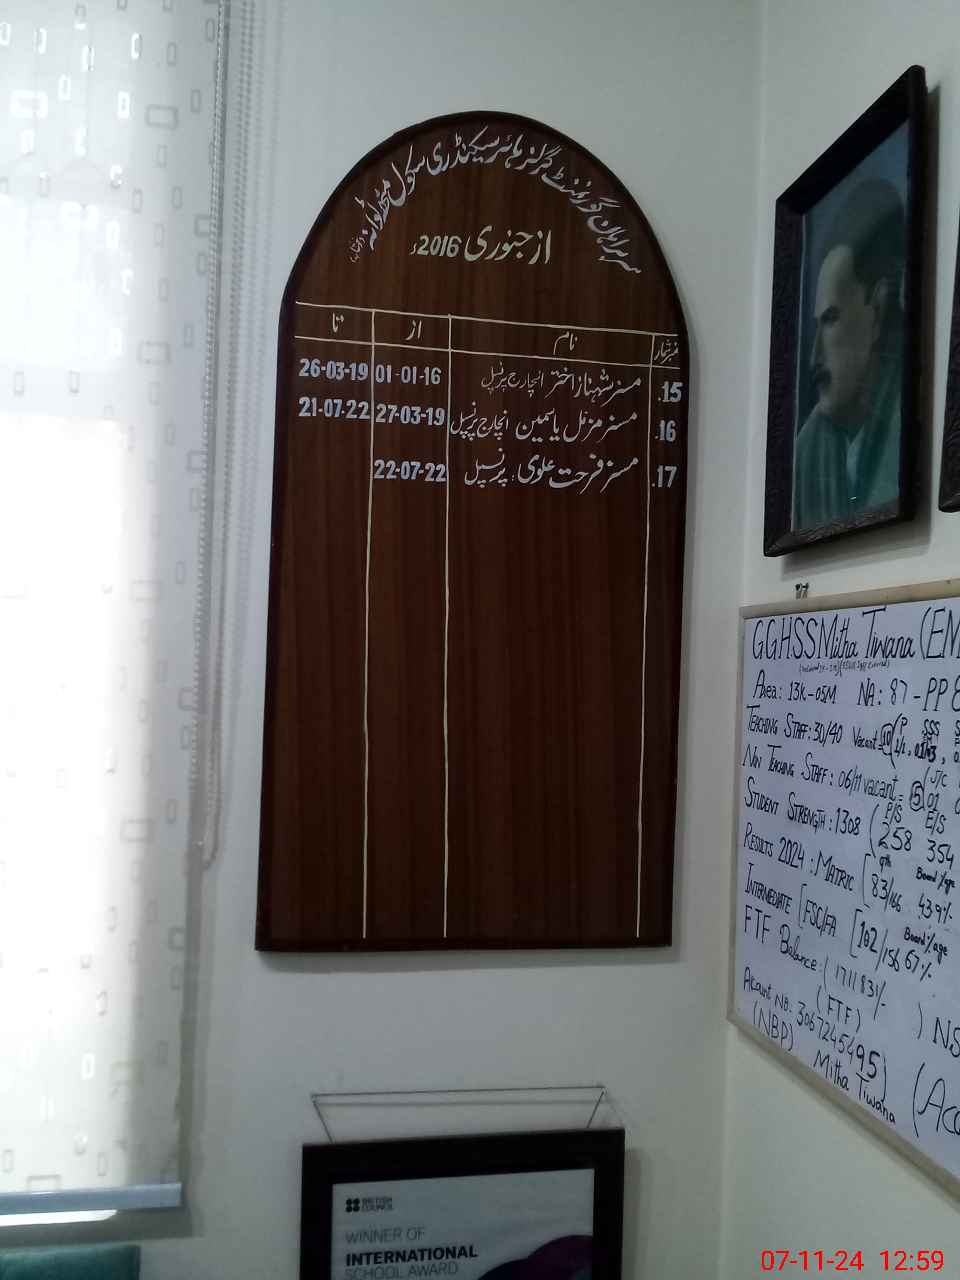 سربراہان گورنمنٹ گرلز ہائر سیکنڈری سکول مٹھہ ٹوانہ (خوشاب)
از جنوری 2016ء
نمبر شمار نام از تا
15. مسز شہناز اختر انچارج پرنسپل 01-01-16 26-03-19
16. مسز مزمل یاسمین انچارج پرنسپل 27-03-19 21-07-22
17. مسز فرحت علوی: پرنسپل 22-07-22
GGHSS Mitha Tiwana (EM
Area: 13K-05M NA: 87-PP8
Teaching Staff: 30/40 Vacant = 10 (P SSS
1/1,
Non Teaching Staff: 06/11 vacant = 05 (J/C
01
Student Strength: 1308 (P/S E/S
258 354
Results 2024: Matric [9th Board %age
83/166 43.9%
Intermediate [FSC/FA [102/156 67% Board %age
FTF Balance: (171183/-
(FTF) ) NS
Account No. 3067245495)
(NBP) Mitha Tiwana (Acc
BRITISH COUNCIL
WINNER OF
INTERNATIONAL
SCHOOL AWARD
07-11-24 12:59